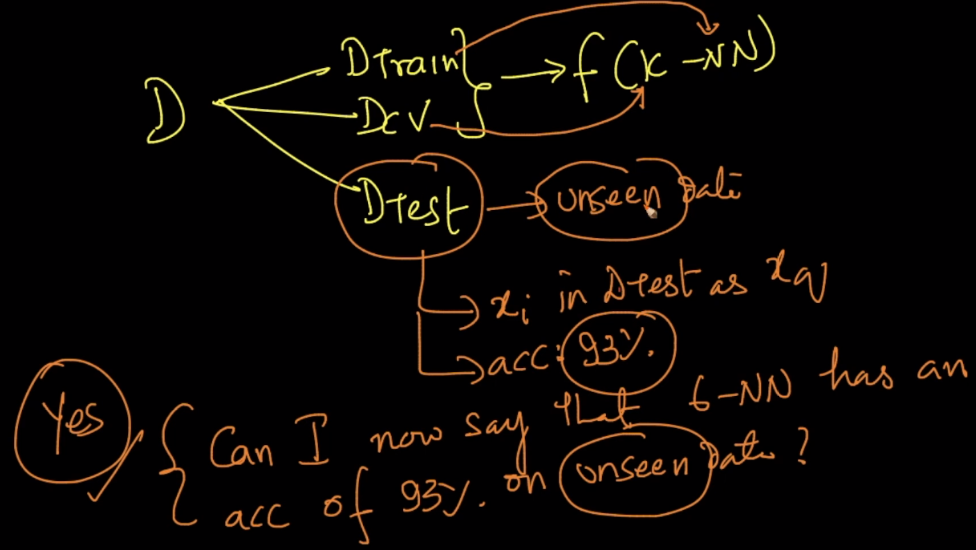 D Dtrain } → f (k-NN)
DCV
Dtest → unseen Data
→ xi in Dtest as xq
→ acc: 93%.
Yes { Can I now say that 6-NN has an
acc of 93%. on unseen Data?